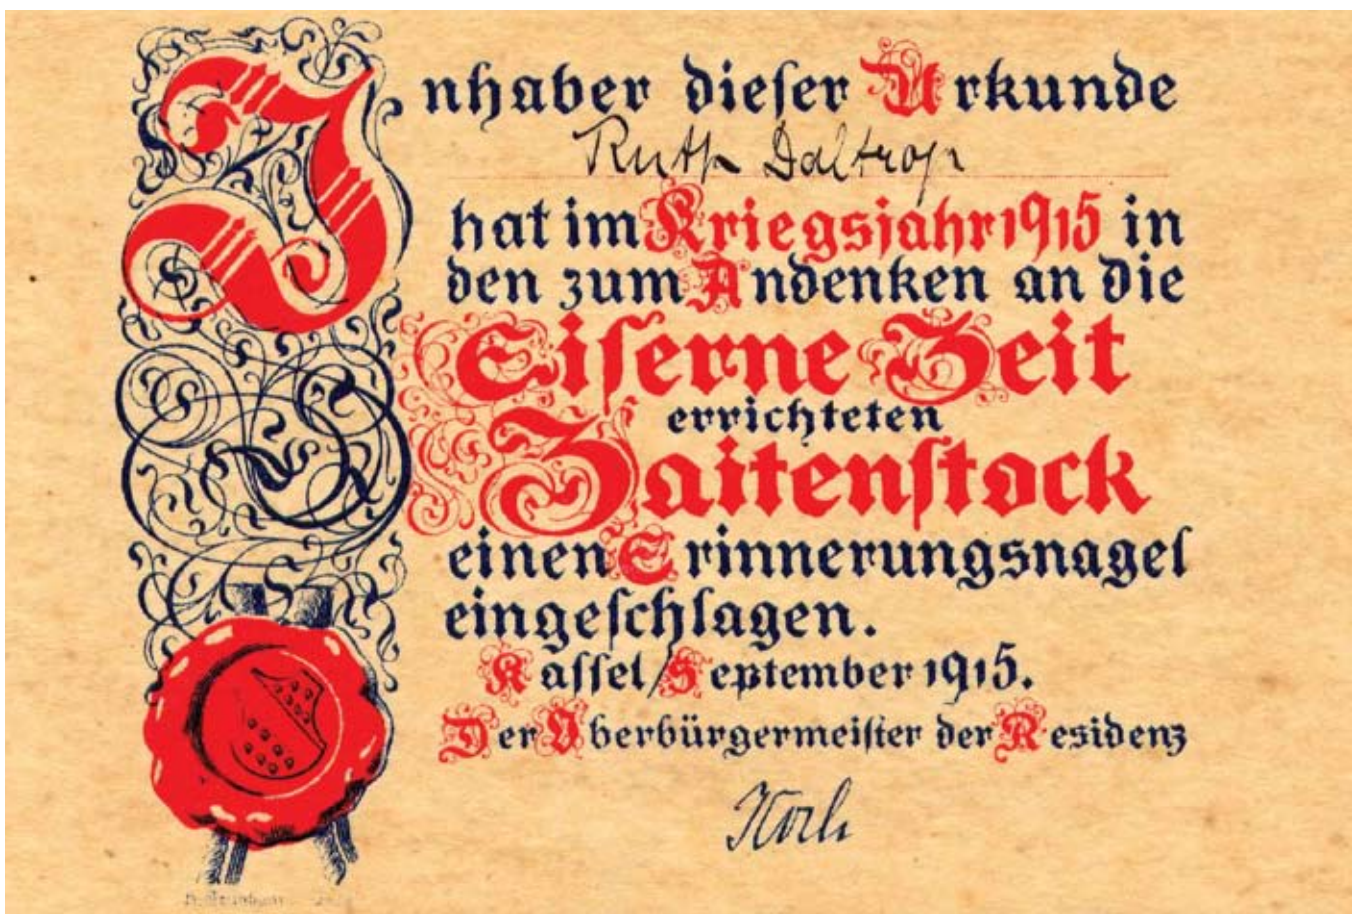 Inhaber dieser Urkunde
Ruth Daltrop
hat im Kriegsjahr 1915 in
den zum Andenken an die
Eiserne Zeit
errichteten
Zaitenstock
einen Erinnerungsnagel
eingeschlagen.
Kassel/September 1915.
Der Oberbürgermeister der Residenz
Koch